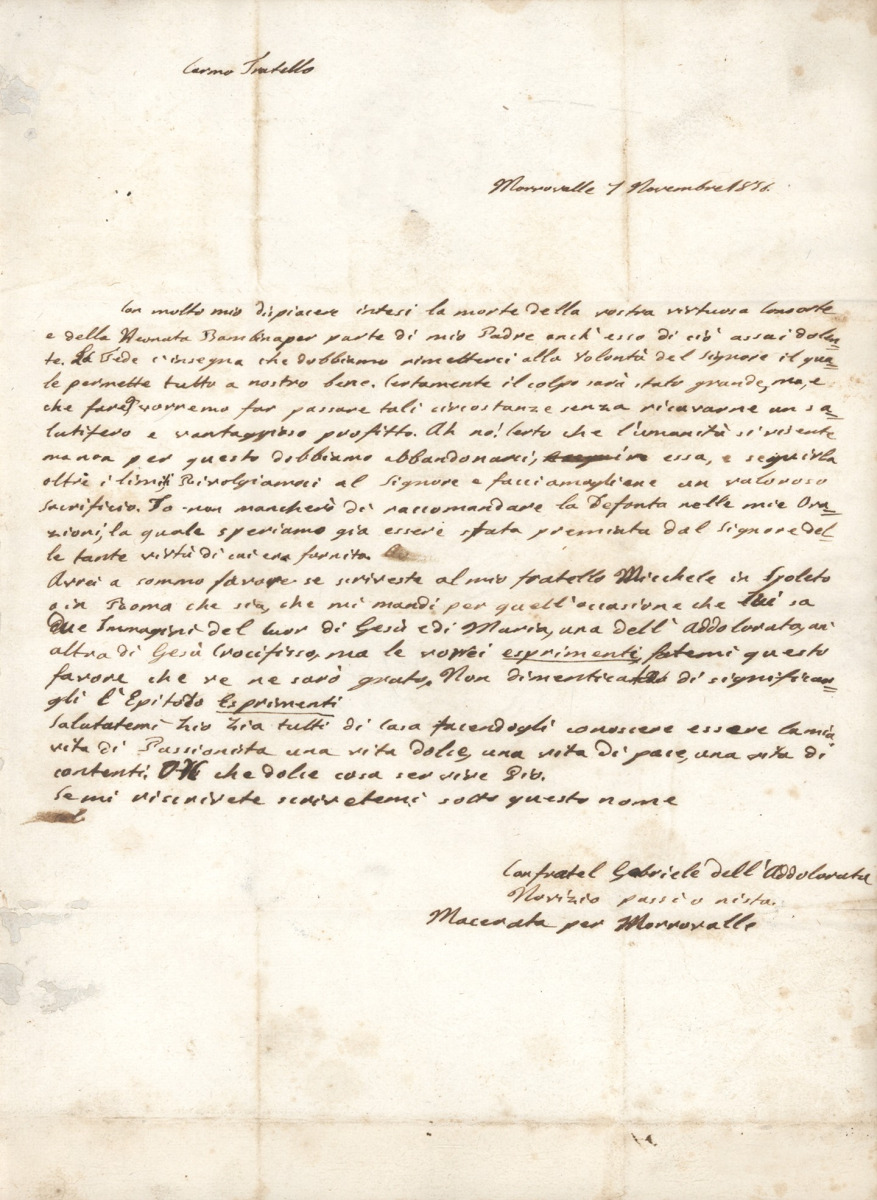 Carmo Fratello
Morrovalle 7 Novembre 1856.
Con molto mio dispiacere intesi la morte della vostra virtuosa Consorte
e della Neonata Bambina per parte di mio Padre anch'esso di ciò assai dolen-
te. La Fede c'insegna che dobbiamo rimetterci alla volontà del Signore il qua-
le permette tutto a nostro bene. Certamente il colpo sarà stato grande, ma, e
che fare? vorremo far passare tali circostanze senza ricavarne un sa-
lutifero e vantaggioso profitto. Ah no! Certo che l'umanità si risente
ma non per questo dobbiamo abbandonarci, essa, e seguirla
oltre i limiti Rivolgiamoci al Signore e facciamogliene un valoroso
sacrificio. Io non mancherò di raccomandare la Defonta nelle mie Ora-
zioni, la quale speriamo già essere stata premiata dal Signore del-
le tante virtù di cui era fornita.
Avrei a sommo favore se scriveste al mio fratello Micchele in Spoleto
o in Roma che sia, che mi mandi per quell'occasione che lui sa
due Immagini del Cuor di Gesù e di Maria, una dell'Addolorata, un
altra di Gesù Crocifisso, ma le vorrei esprimenti, fatemi questo
favore che ve ne sarò grato, Non dimenticate di significar-
gli l'Epiteto Esprimenti
Salutatemi Zio Zia tutti di casa facendogli conoscere essere la mia
vita di Passionista una vita dolce, una vita di pace, una vita di
contenti. Oh che dolce cosa servire Dio.
Se mi riscrivete scrivetemi sotto questo nome
Confratel Gabriele dell'Addolorata
Novizio passionista.
Macerata per Morrovalle